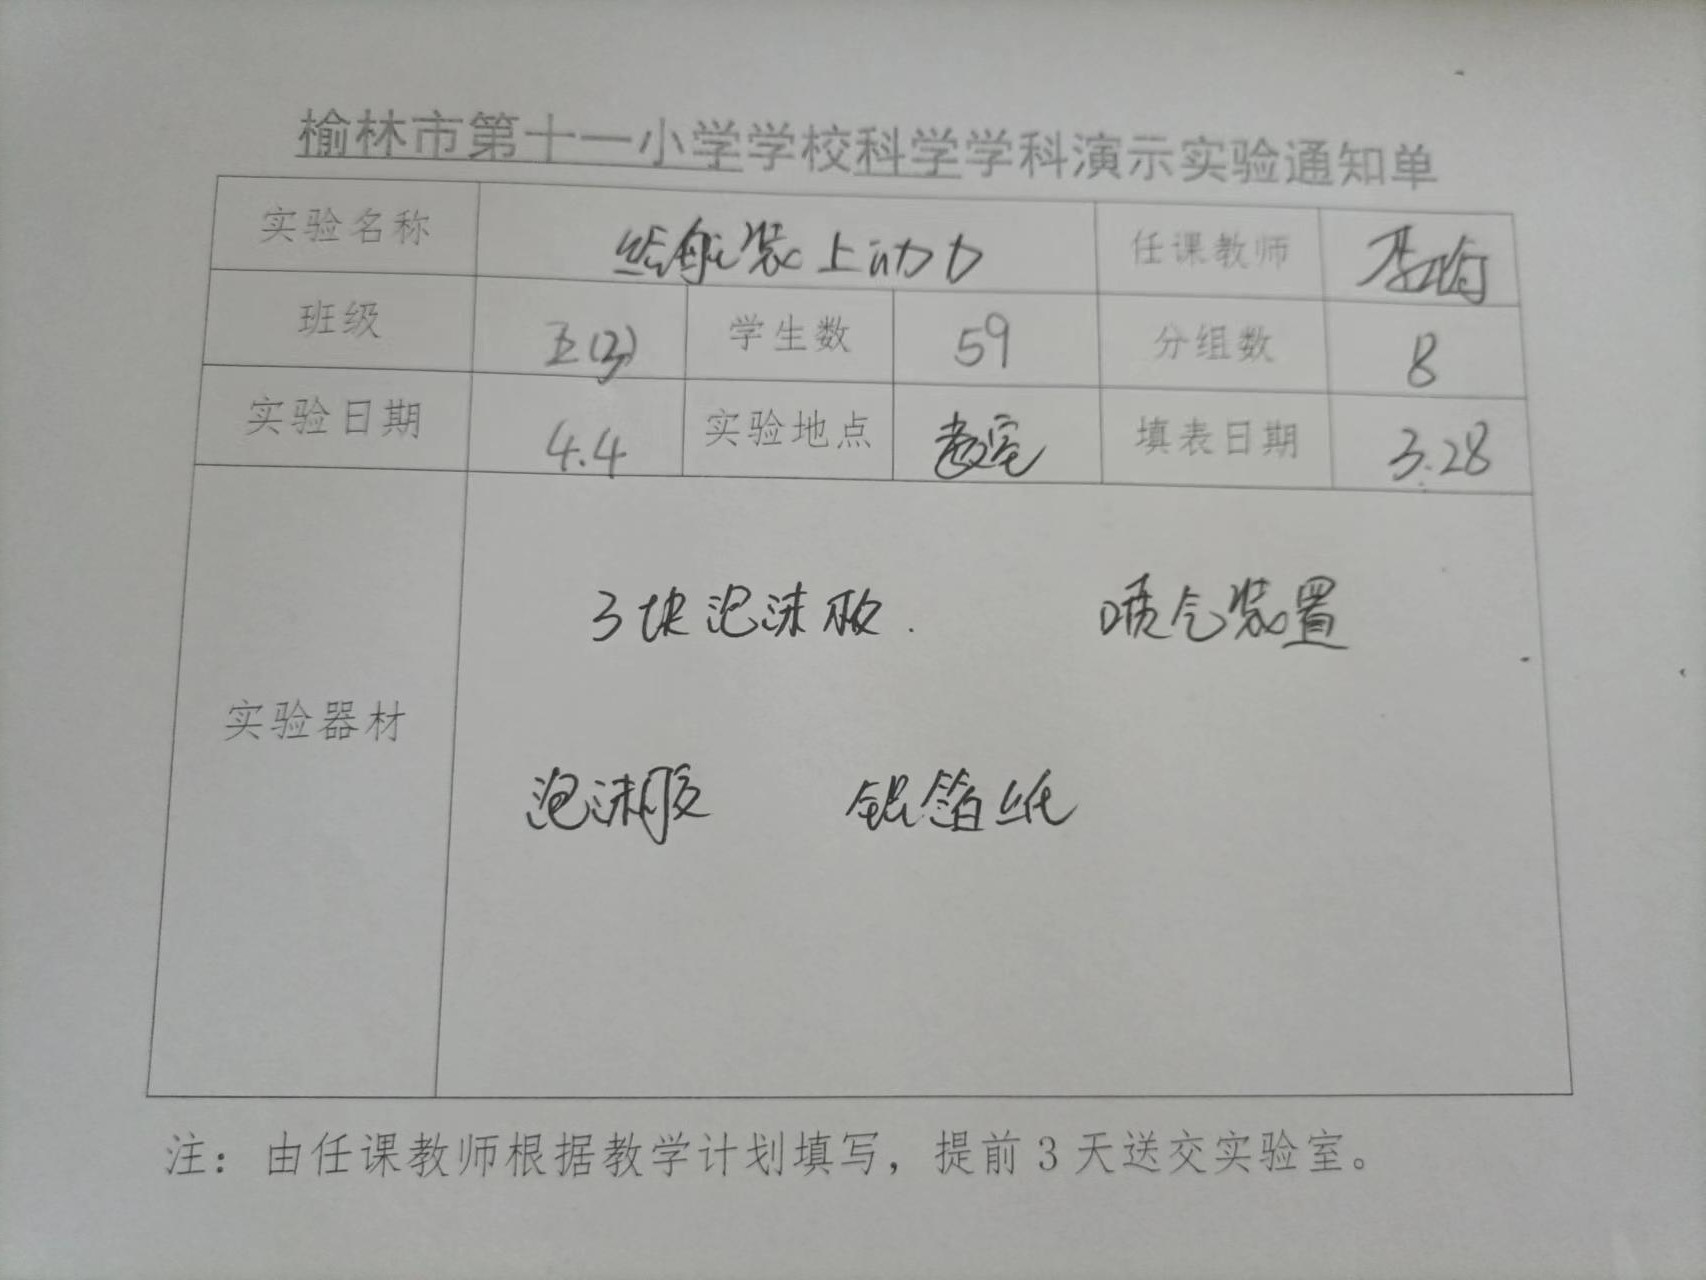 榆林市第十一小学学校科学学科演示实验通知单
实验名称 给船装上动力 任课教师
班级 五(3) 学生数 59 分组数 8
实验日期 4.4 实验地点 教室 填表日期 3.28
3块泡沫板. 喷气装置
实验器材
泡沫胶 铝箔纸
注：由任课教师根据教学计划填写，提前3天送交实验室。